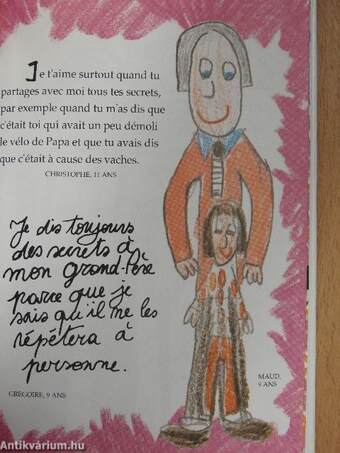 Je t'aime surtout quand tu
partages avec moi tous tes secrets,
par exemple quand tu m'as dis que
c'était toi qui avait un peu démoli
le vélo de Papa et que tu avais dis
que c'était à cause des vaches.
CHRISTOPHE, 11 ANS
Je dis toujours
des secrets à
mon grand-Père
parce que je
sais qu'il me les
répétera à
personne.
GRÉGOIRE, 9 ANS
MAUD,
9 ANS
Antikvárium.hu